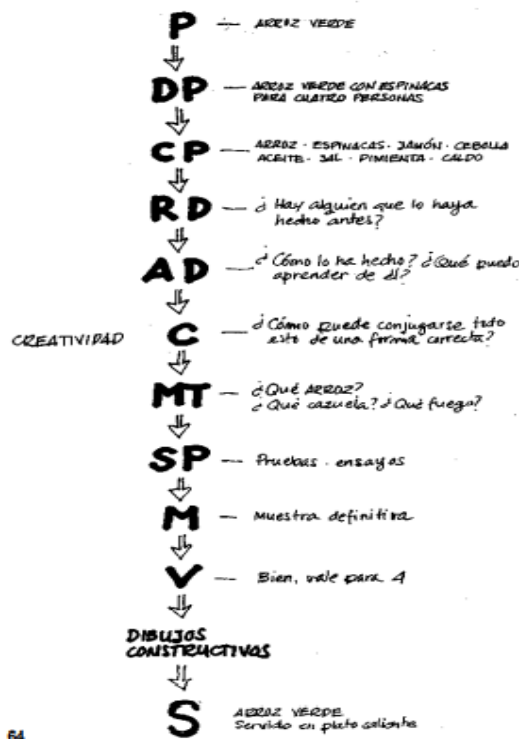 P — ARROZ VERDE
DP — ARROZ VERDE CON ESPINACAS
PARA CUATRO PERSONAS
CP — ARROZ - ESPINACAS - JAMÓN - CEBOLLA
ACEITE - SAL - PIMIENTA - CALDO
RD — ¿Hay alguien que lo haya
hecho antes?
AD — ¿Cómo lo ha hecho? ¿Qué puedo
aprender de él?
CREATIVIDAD C — ¿Cómo puede conjugarse todo
esto de una forma correcta?
MT — ¿Qué ARROZ?
¿Qué cazuela? ¿Qué fuego?
SP — Pruebas . ensayos
M — Muestra definitiva
V — Bien, vale para 4
DIBUJOS
CONSTRUCTIVOS
S ARROZ VERDE
Servido en plato caliente
64